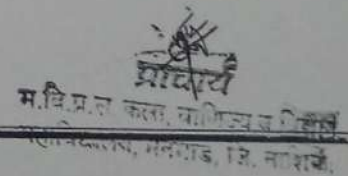 प्राचार्य
म.वि.प्र.स कला, वाणिज्य व विज्ञान
महाविद्यालय, मनमाड, जि. नाशिक.